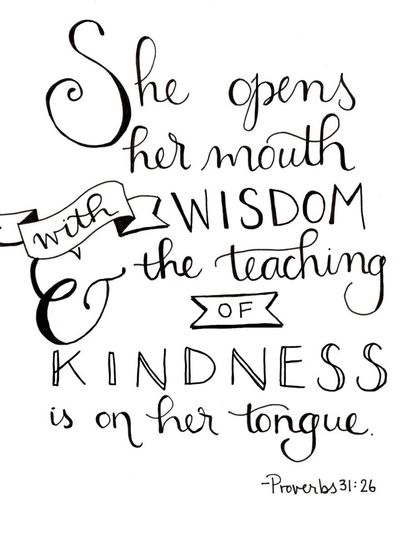 She opens
her mouth
with WISDOM
& the teaching
OF
KINDNESS
is on her tongue.
-Proverbs 31:26